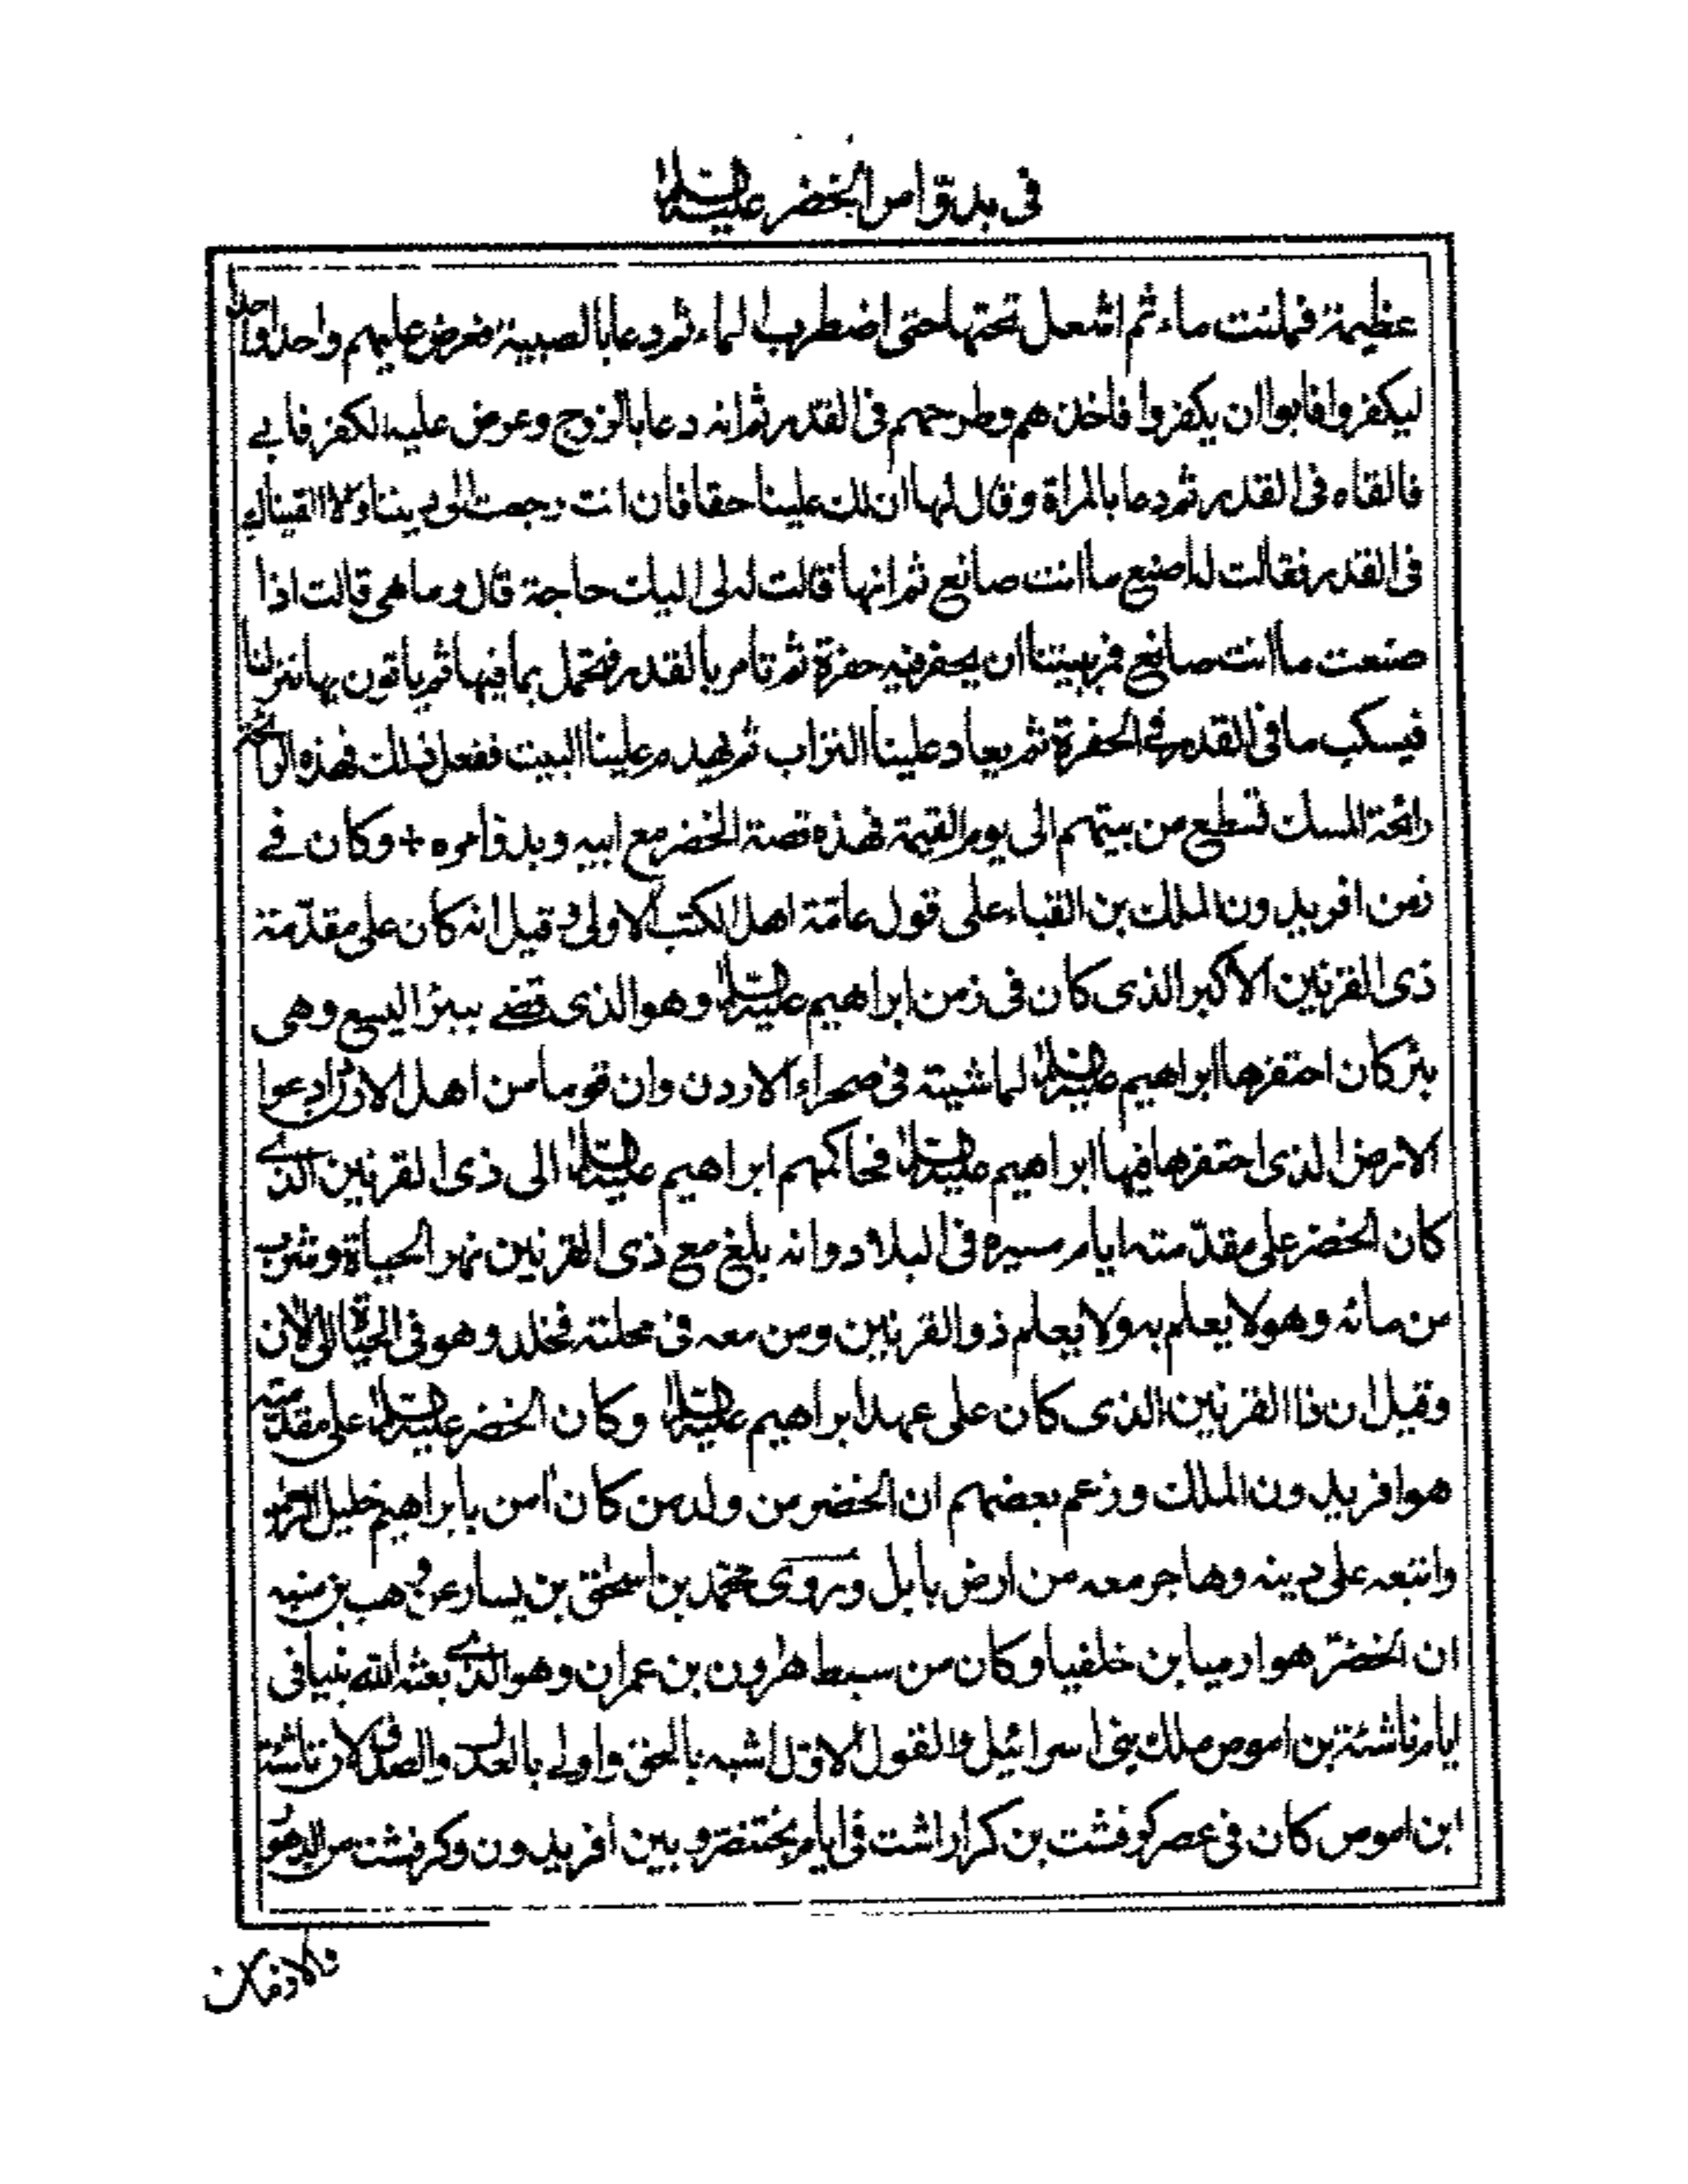 فى بدوّ امر الخضر عليه السلام
عظيمة فملئت ماء ثم اشعل تحتها حتى اضطرب الماء ثم دعا بالصبية فعرض عليهم واحدا واحدا
ليكفروا فابوا ان يكفروا فاخذهم وطرحهم فى القدر ثم انه دعا بالزوج وعرض عليه الكفر فابے
فالقاه فى القدر ثم دعا بالمراة وقال لها ان لك علينا حقا فان انت رجعت الى ديننا والا القيناك
فى القدر فقالت له اصنع ما انت صانع ثم انها قالت له لى اليك حاجة قال وما هى قالت اذا
صنعت ما انت صانع فمر ببيتنا ان يحفر فيه حفرة ثم تامر بالقدر فتحمل بما فيها ثم ياتون بها منزلنا
فيسكب ما فى القدر فے الحفرة ثم يعاد علينا التراب ثم يهدم علينا البيت ففعل ذلك فهذه الرائحة
رائحة المسك تسطع من بيتهم الى يوم القيمة فهذه قصة الخضر مع ابيه وبدؤ امره + وكان فے
زمن افريدون الملك بن القباء على قول عامّة اهل الكتب الاولى وقيل انه كان على مقدّمة
ذى القرنين الاكبر الذى كان فى زمن ابراهيم عليه السلام وهو الذى قضے ببئر السبع وهى
بئر كان احتفرها ابراهيم عليه السلام لماشيته فى صحراء الاردن وان قوما من اهل الاردن ادعوا
الارض الذى احتفرها فيها ابراهيم عليه السلام فحاكمهم ابراهيم عليه السلام الى ذى القرنين الذے
كان الخضر على مقدّمته ايام سيره فى البلاد وانه بلغ مع ذى القرنين نهر الحياة وشرب
من مائه وهو لا يعلم به ولا يعلم ذو القرنين ومن معه فى محلته فخلد وهو فى الحياة الى الان
وقيل ان ذا القرنين الذى كان على عهد ابراهيم عليه السلام وكان الخضر عليه السلام على مقدّمته
هو افريدون الملك وزعم بعضهم ان الخضر من ولد من كان امن بابراهيم خليل الرحمن
واتبعه على دينه وهاجر معه من ارض بابل وروى محمّد بن اسحٰق بن يسار عن وهب بن منبه
ان الخضر هو ارميا بن خلفيا وكان من سبط هٰرون بن عمران وهو الذے بعثه الله نبيا فى
ايام ناشئة بن اموص ملك بنى اسرائيل والقول الاوّل اشبه بالحق واولے بالعدل والصدق لان ناشئة
ابن اموص كان فى عصر كوفشت بن كراراشت فى ايام بختنصر وبين افريدون وكرفشت من الدهور